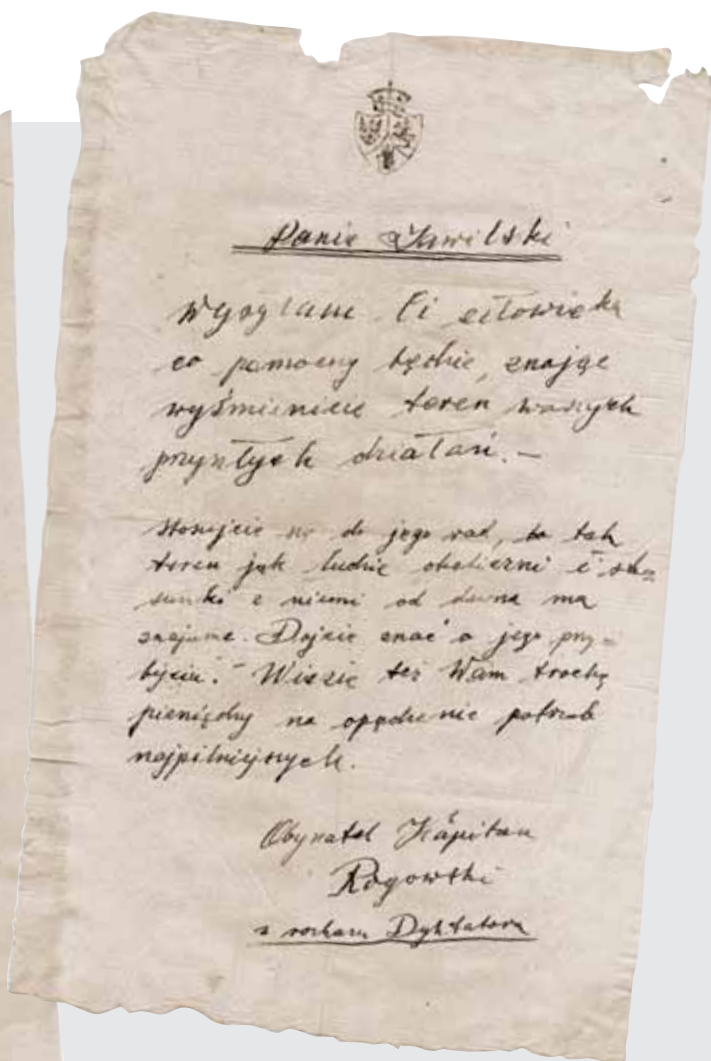 Panie Zawilski
Wysyłam Ci człowieka
co pomocny będzie, znając
wyśmienicie teren waszych
przyszłych działań. –
Stosujcie się do jego rad, bo tak
teren jak ludzie okoliczni i sto=
sunki z niemi od dawna ma
znajome. Dajcie znać o jego przy=
byciu. – Wiezie też Wam trochę
pieniędzy na opędzenie potrzeb
najpilniejszych.
Obywatel Kapitan
Rogowski
z rozkazu Dyktatora